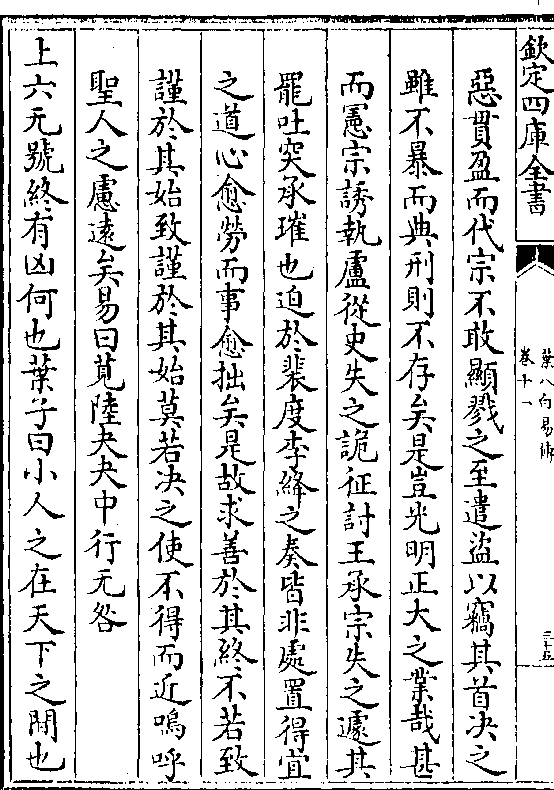 欽定四庫全書
葉八白易傳
卷十一
三十五
惡貫盈而代宗不敢顯戮之至遣盜以竊其首决之
雖不暴而典刑則不存矣是豈光明正大之業哉甚
而憲宗誘執盧從史失之詭征討王承宗失之遽其
罷吐突承璀也迫於裴度李絳之奏皆非處置得宜
之道心愈勞而事愈拙矣是故求善於其終不若致
謹於其始致謹於其始莫若决之使不得而近嗚呼
聖人之慮遠矣易曰莧陸夬夬中行无咎
上六无號終有凶何也葉子曰小人之在天下之間也